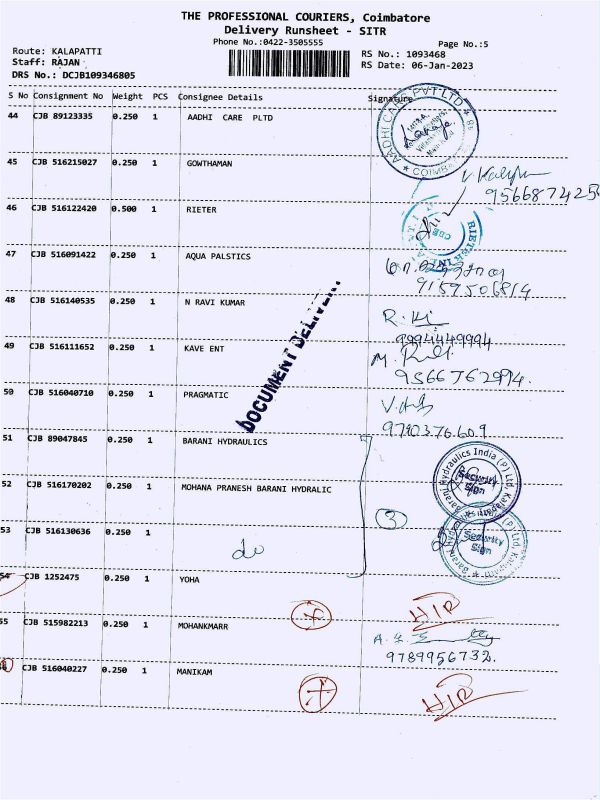 THE PROFESSIONAL COURIERS, Coimbatore
Delivery Runsheet - SITR
Phone No.:0422-3505555
Page No.:5
Route: KALAPATTI
RS No.: 1093468
Staff: RAJAN
RS Date: 06-Jan-2023
DRS No.: DCJB109346805
S No Consignment No Weight PCS Consignee Details Signature
44 CJB 89123335 0.250 1 AADHI CARE PLTD
AADHI CARE PVT LTD
45 CJB 516215027 0.250 1 GOWTHAMAN
46 CJB 516122420 0.500 1 RIETER
47 CJB 516091422 0.250 1 AQUA PALSTICS
9159506814
48 CJB 516140535 0.250 1 N RAVI KUMAR
9994449994
49 CJB 516111652 0.250 1 KAVE ENT
50 CJB 516040710 0.250 1 PRAGMATIC
DOCUMENT DELIVER
51 CJB 89047845 0.250 1 BARANI HYDRAULICS
Barani Hydraulics India (P) Ltd,
Security
Sign
52 CJB 516170202 0.250 1 MOHANA PRANESH BARANI HYDRALIC
3
53 CJB 516130636 0.250 1
do
Security
Sign
54 CJB 1252475 0.250 1 YOHA
55 CJB 515982213 0.250 1 MOHANKMARR
9789956732.
CJB 516040227 0.250 1 MANIKAM